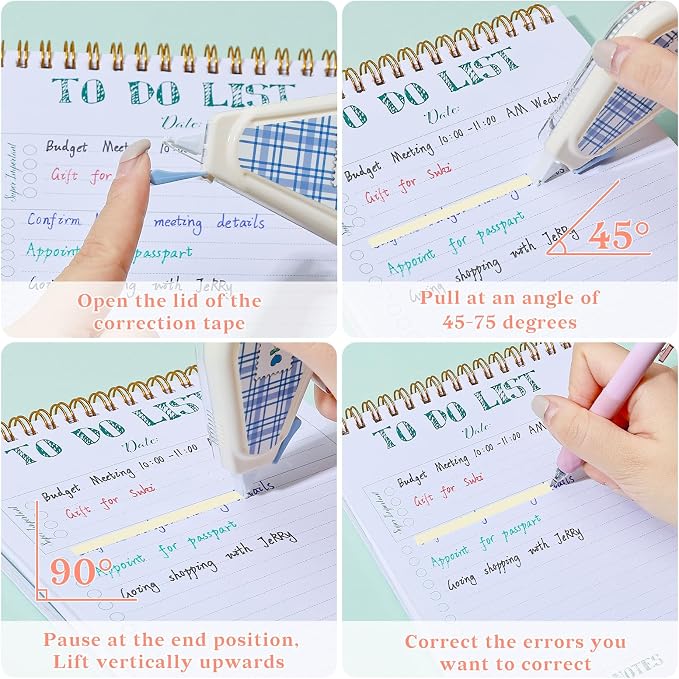 TO DO LIST
Date:
Super Important
Budget Meeting 10:00
Gift for
Confirm meeting details
Appoint for passpart
Going shopping with JeRRy
Open the lid of the
correction tape
O DO LIST
Date:
Budget Meeting 10:00 -11:00 AM Wedn
Gift for Suki
Appoint for passpart
Going shopping with JeRRy
45°
Pull at an angle of
45-75 degrees
TO DO LIST
Date:
Budget Meeting 10:00 -11:00
Super Important
Gift for Suki
ails
Appoint for passpart
Going shopping with JeRRy
90°
Pause at the end position,
Lift vertically upwards
TO DO LIST
Date:
Budget Meeting 10:00 -11:00 AM
Super Important
Gift for Suki
ails
Appoint for passpart
Going shopping with JeRRy
NOTES
Correct the errors you
want to correct